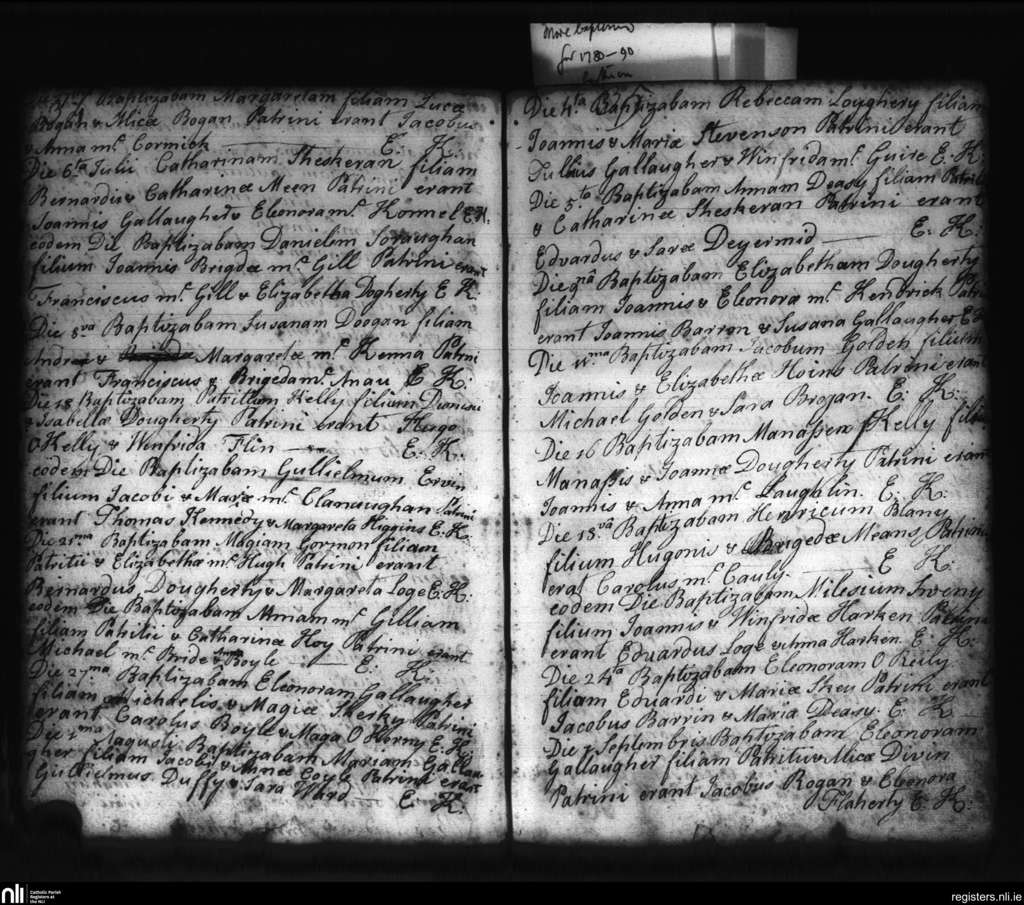 More baptisms
for 1780-90
Baptizabam Margaretam filiam Lucæ
Rogan & Aliciæ Rogan Patrini erant Jacobus
& Anna mc Cormick E. K:
Die 6ta Julii Catharinam Sheskeran filiam
Bernardi & Catharineæ Meen Patrini erant
Joannis Gallaugher & Eleonora mc Konnel E. K.
eodem Die Baptizabam Danielem Soraughan
filium Joannis Brigdæ mc Gill Patrini erant
Franciscus mc Gill & Elizabetha Dogherty E K:
Die 8va Baptizabam Susanam Dorgan filiam
Andreæ & Margaretæ mc Kenna Patrini
erant Franciscus & Brigeda mc Anau E K:
Die 18 Baptizabam Patritium Kelly filium Dionisii
& Isabellæ Dougherty Patrini erant Hugo
O Kelly & Winfrida Flin E. K:
eodem Die Baptizabam Gullielmum Ervin
filium Jacobi & Mariæ mc Clanaughan Patrini
erant Thomas Kennedy & Margareta Higgins E. K.
Die 21ma Baptizabam Magiam Gormon filiam
Patritii & Elizabethæ mc Hugh Patrini erant
Bernardus Dougherty & Margareta Loge E: K:
eodem Die Baptizabam Annam mc Gilliam
filiam Patritii & Catharineæ Hoy Patrini erant
Michael mc Bride & Anna Boyle E. K.
Die 27ma Baptizabam Eleonoram Gallaugher
filiam Michaelis & Magiæ Sherky Patrini
erant Carolus Boyle & Maga O Horny E: K
Die 2ma Augusti Baptizabam Mariam Gallau-
gher filiam Jacobi & Annæ Coyle Patrini erant
Gullielmus Duffy & Sara Ward E. K:
Die 4ta Baptizabam Rebeccam Loughery filiam
Joannis & Mariæ Stevenson Patrini erant
Julius Gallaugher & Winfrida mc Guire E. K:
Die 5ta Baptizabam Annam Deasy filiam Patritii
& Catharineæ Sheskeran Patrini erant
Edvardus & Saræ Deyermid E. K:
Die 9na Baptizabam Elizabetham Dougherty
filiam Joannis & Eleonoræ mc Kendrick Patri
erant Joannis Barron & Susana Gallaugher E K
Die 11ma Baptizabam Jacobum Golden filium
Joannis & Elizabethæ Hoins Patrini erant
Michael Golden & Sara Brogan. E: K:
Die 16 Baptizabam Manassen Kelly filium
Manassis & Joannæ Dougherty Patrini erant
Joannis & Anna mc Laughlin. E: K:
Die 18va Baptizabam Henricum Blany
filium Hugoni & Brigedæ Means Patrini
erat Carolus mc Cauly. E K:
eodem Die Baptizabam Milesium Sweny
filium Joannis & Winfridæ Harken Patrini
erant Edvardus Loge & Anna Harken. E: K:
Die 24ta Baptizabam Eleonoram O Reily
filiam Eduardi & Mariæ Sheu Patrini erant
Jacobus Barrin & Maria Deasy. E: K
Die 7 Septembris Baptizabam Eleonoram
Gallaugher filiam Patritii & Aliciæ Divin
Patrini erant Jacobus Rogan & Eleonora
Flaherty E: K:
nli
Catholic Parish
Registers at
the NLI
registers.nli.ie